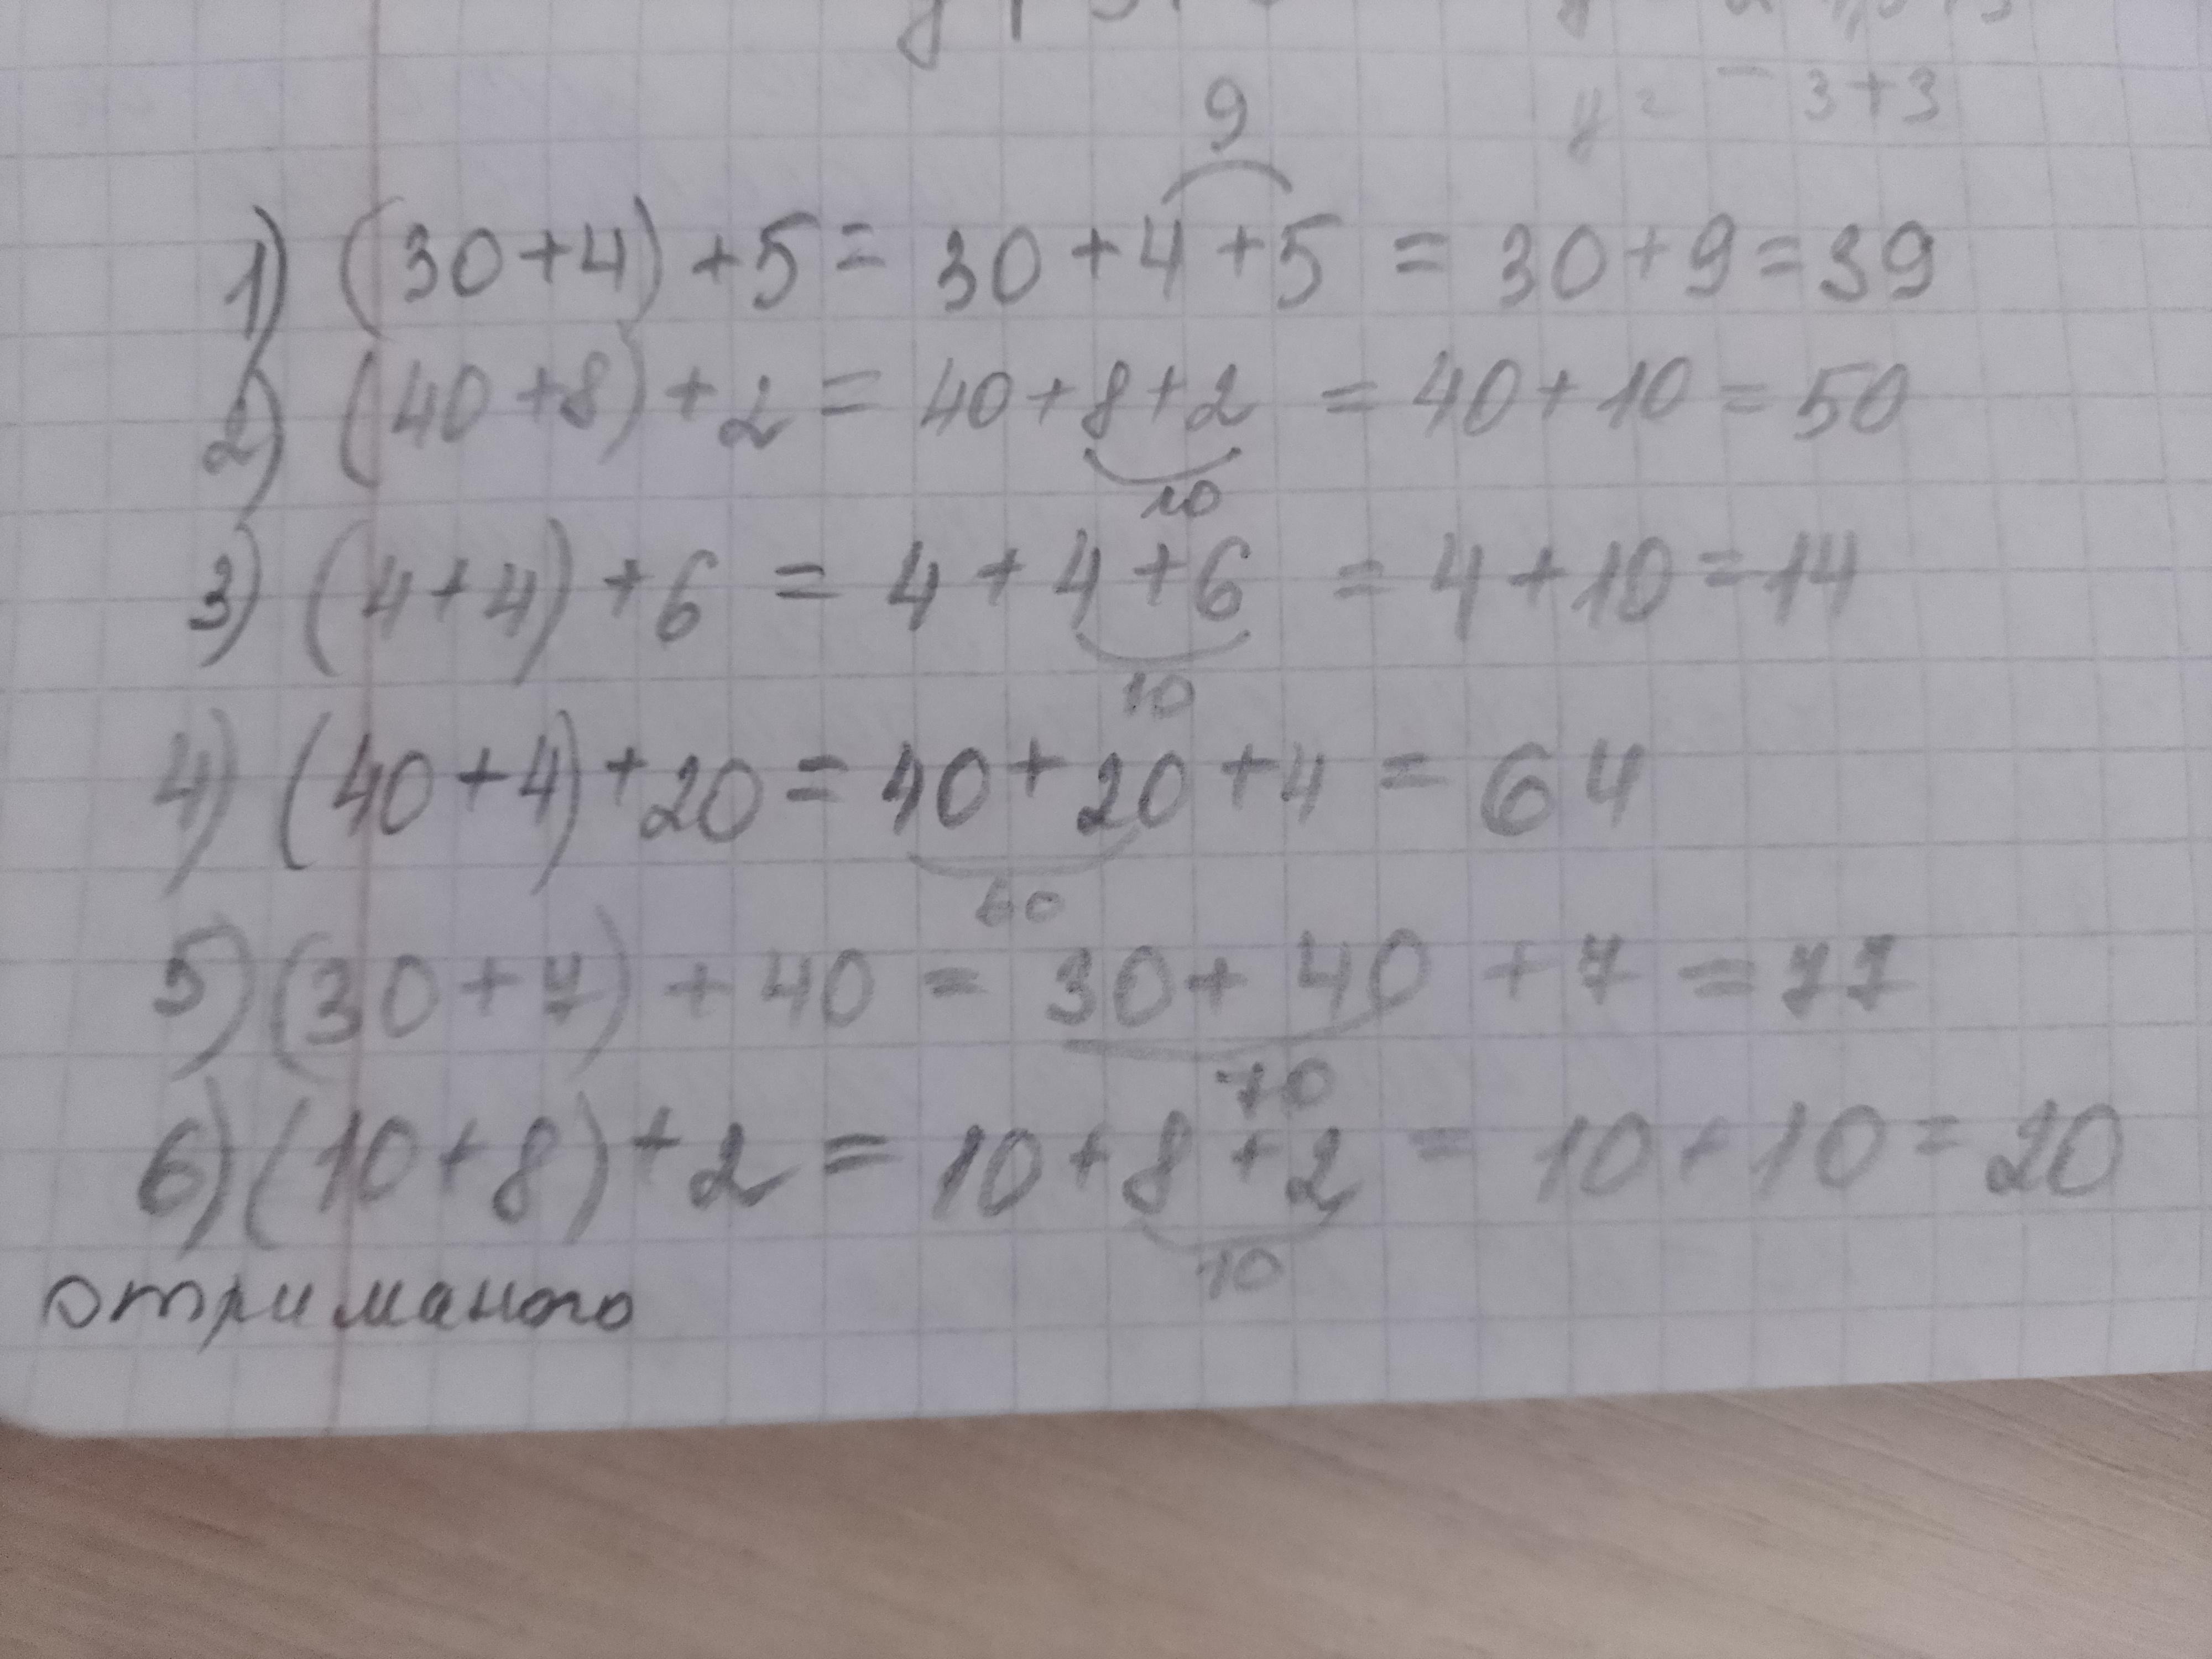 y = - 3 + 3
9
1) (30+4) +5 = 30 + 4 + 5 = 30 + 9 = 39
2) (40 + 8) + 2 = 40 + 8 + 2 = 40 + 10 = 50
10
3) (4 + 4) + 6 = 4 + 4 + 6 = 4 + 10 = 14
10
4) (40 + 4) + 20 = 40 + 20 + 4 = 64
60
5) (30 + 7) + 40 = 30 + 40 + 7 = 77
70
6) (10 + 8) + 2 = 10 + 8 + 2 = 10 + 10 = 20
10
отриманого